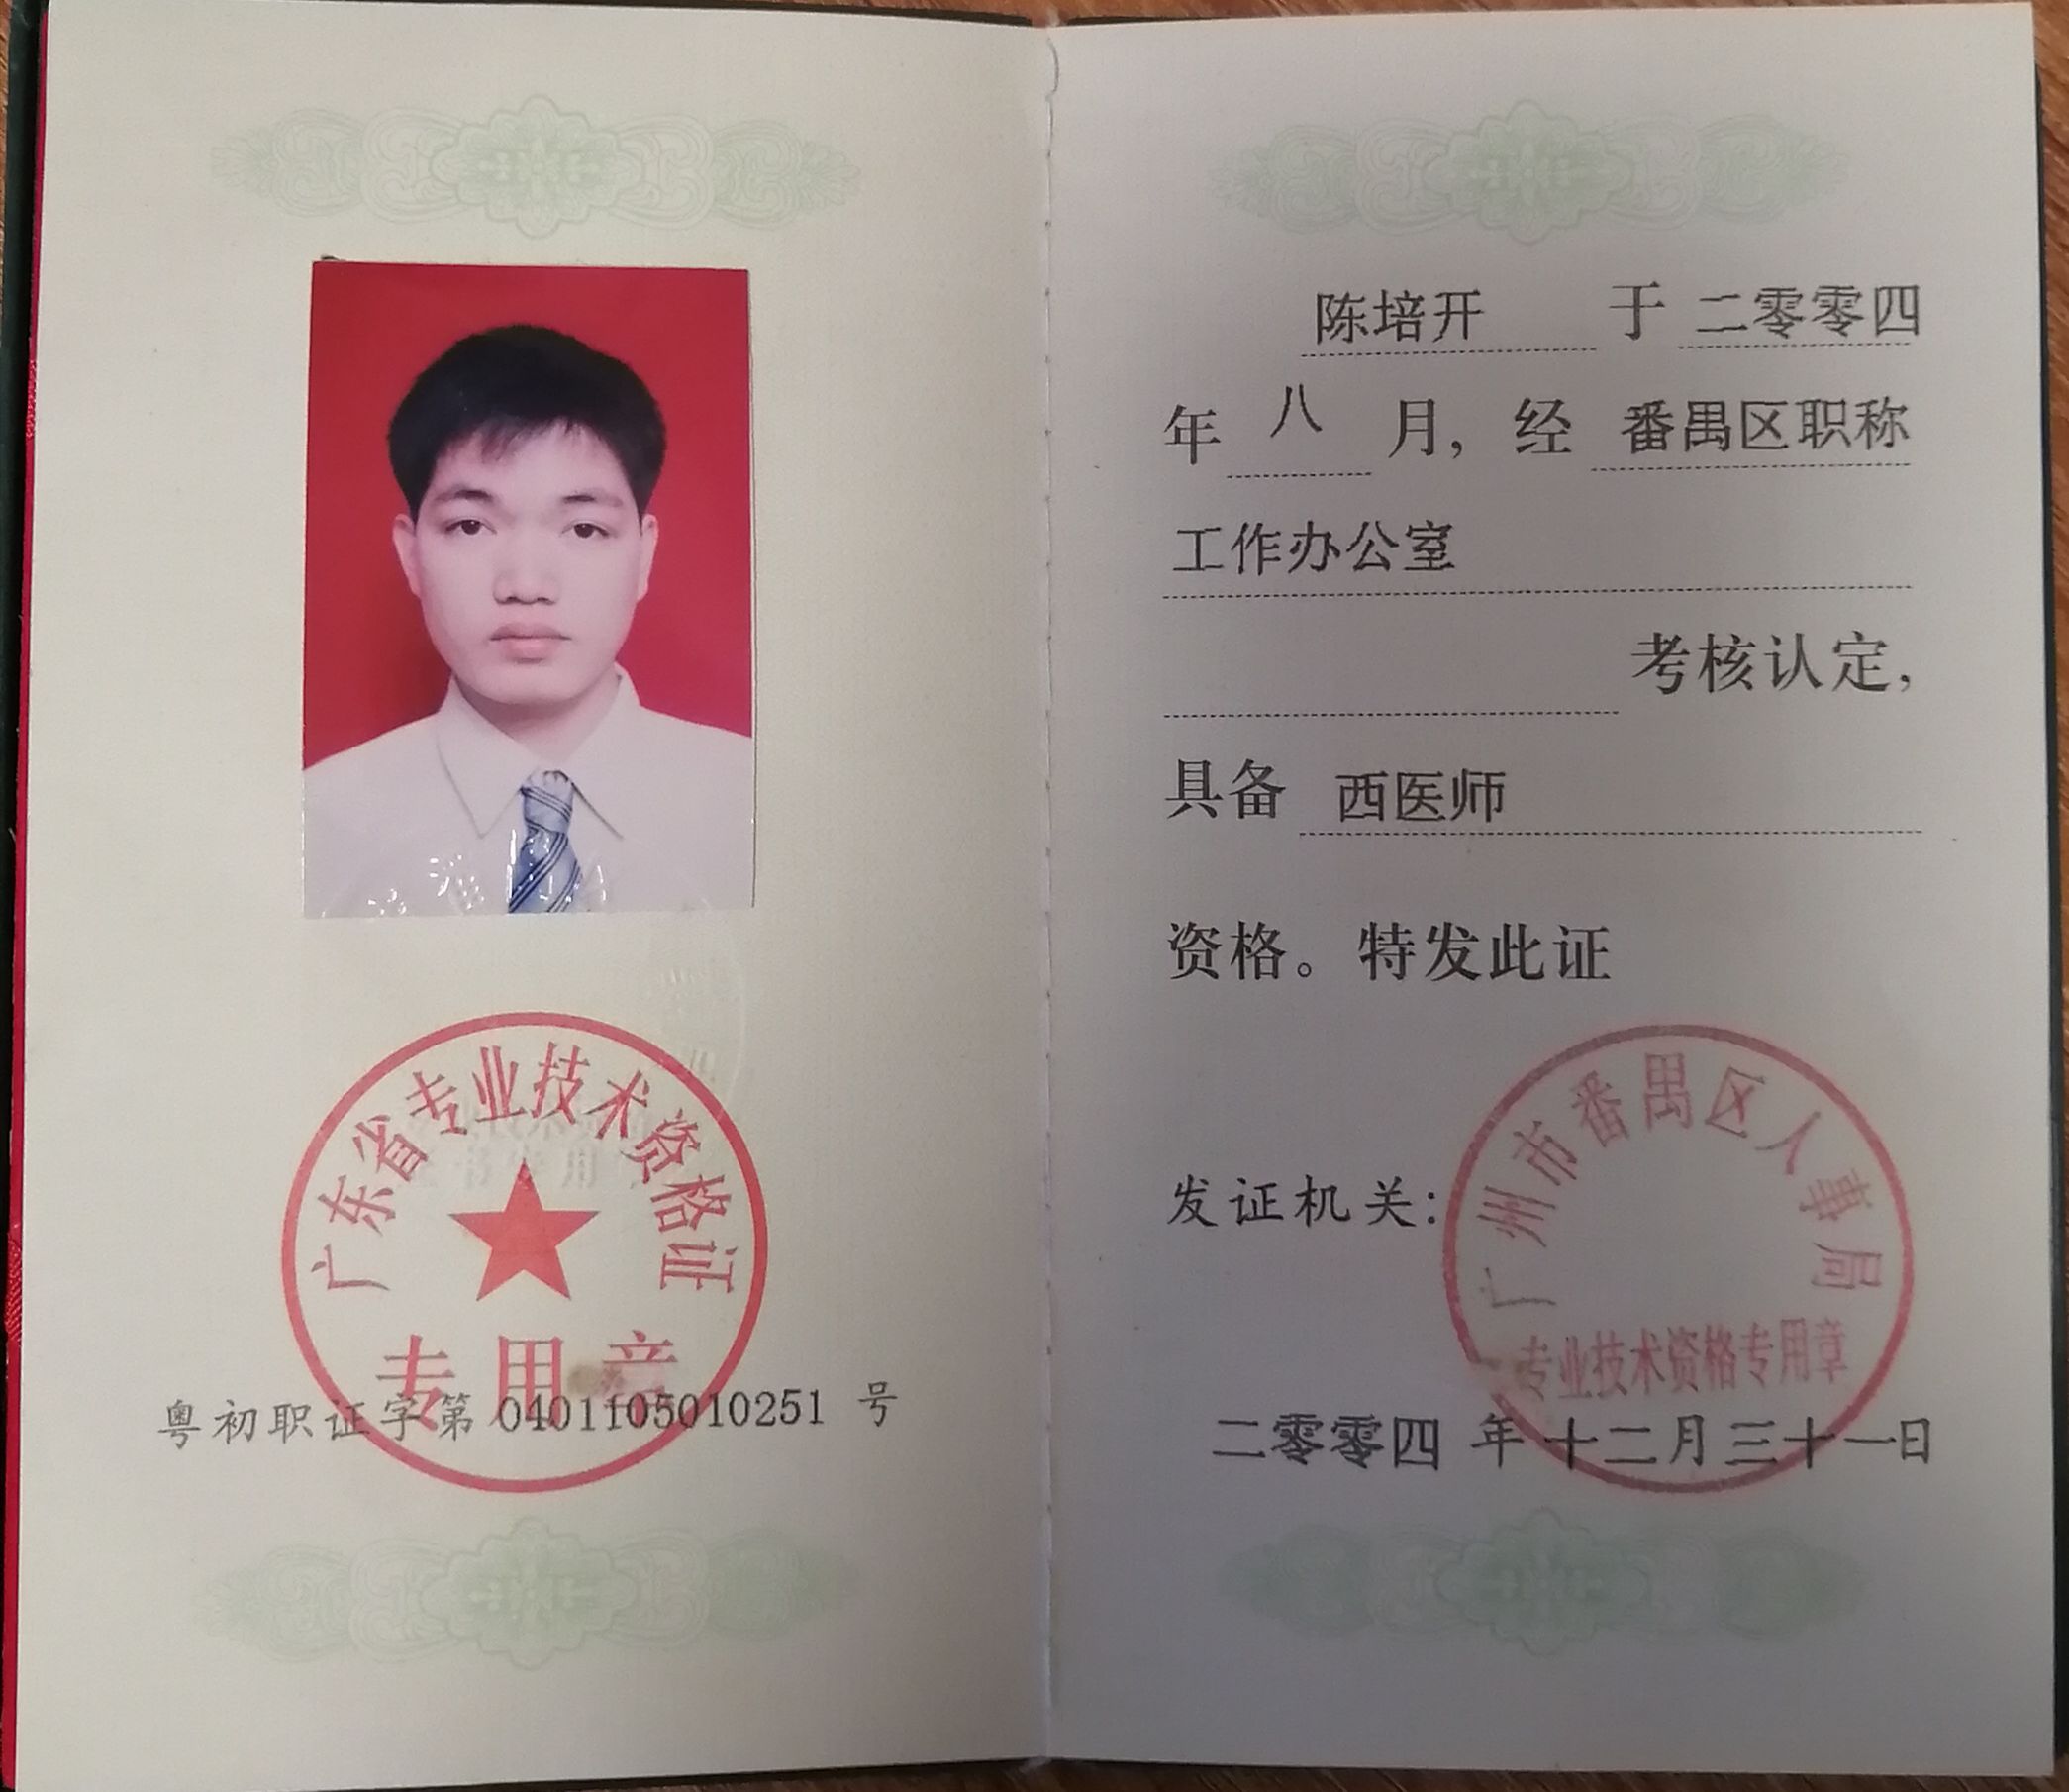 广东省专业技术资格证
专用章
粤初职证字第 0401105010251 号
陈培开 于 二零零四
年 八 月，经 番禺区职称
工作办公室
考核认定，
具备 西医师
资格。特发此证
发证机关：
广州市番禺区人事局
专业技术资格专用章
二零零四 年 十二月 三十一日